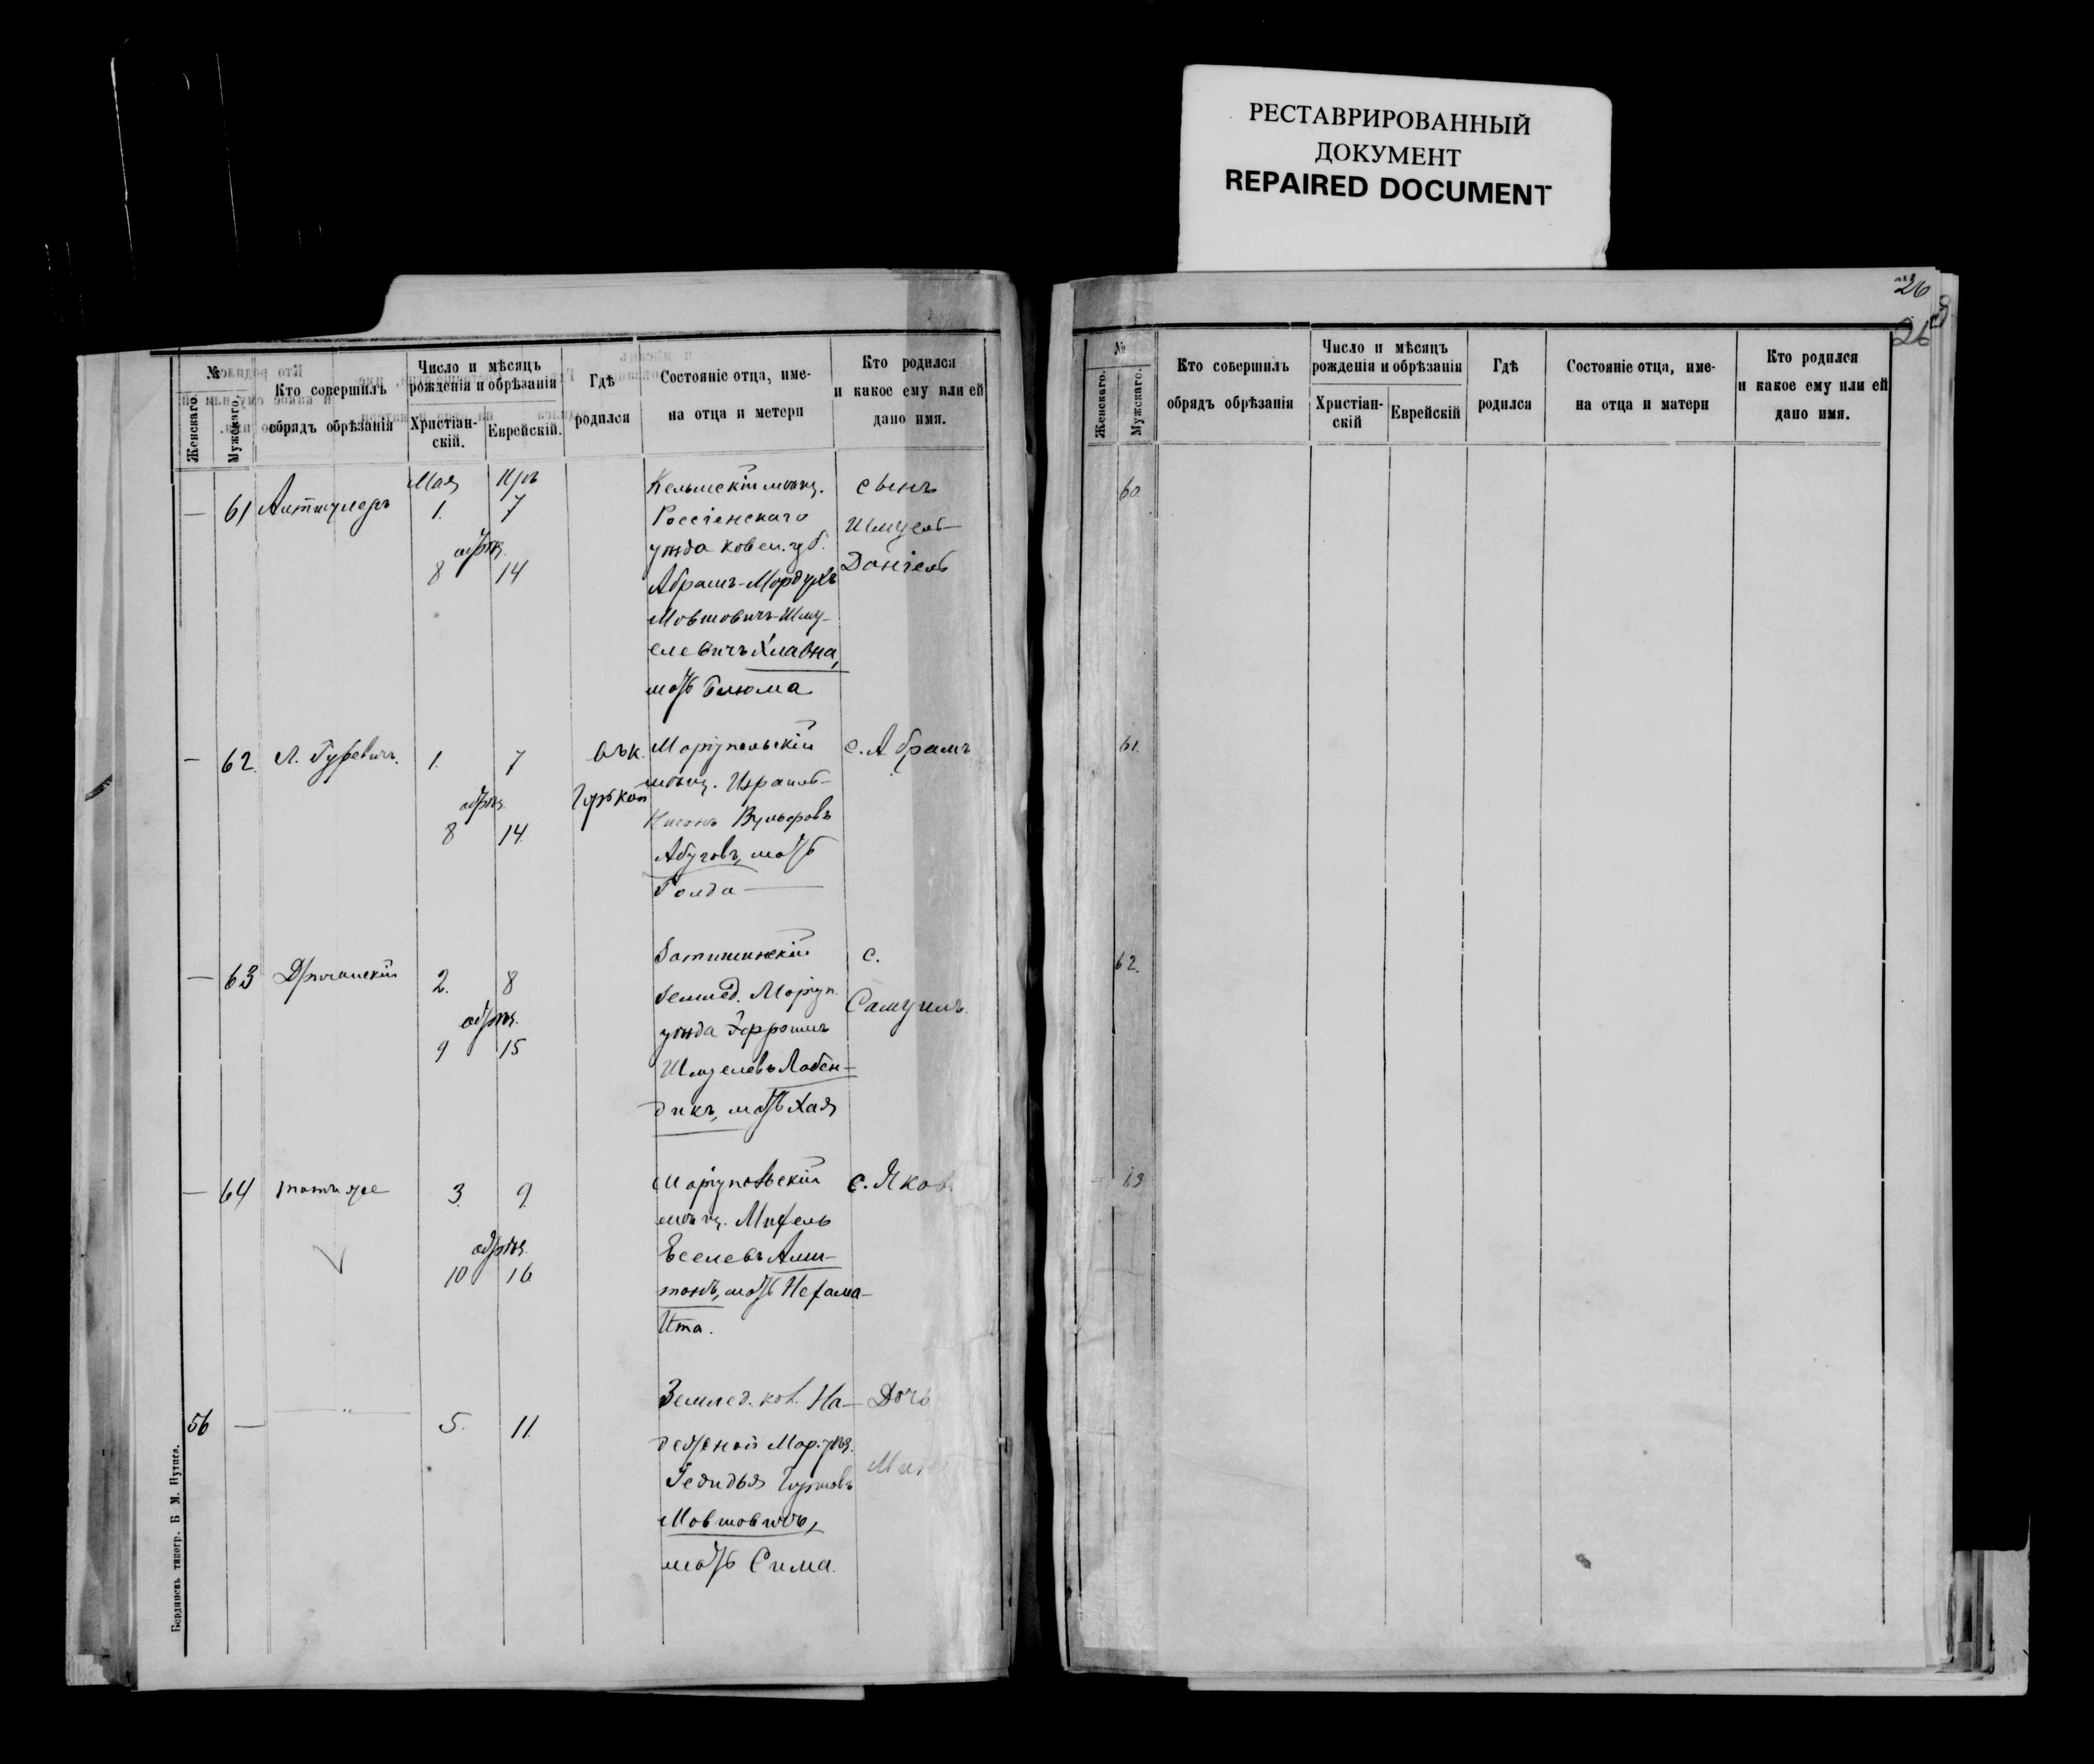 РЕСТАВРИРОВАННЫЙ
ДОКУМЕНТ
REPAIRED DOCUMENT
№
Женскаго.
Мужскаго.
Кто совершилъ
обрядъ обрѣзанія
Число и мѣсяцъ
рожденія и обрѣзанія
Христіан-
скій.
Еврейскій.
Гдѣ
родился
Состояніе отца, име-
на отца и метери
Кто родился
и какое ему или ей
дано имя.
Мая
— 61
1. 7
обрѣз.
8 14
Кельмскій мѣщ.
Россіенскаго
уѣзда Ковен. губ.
Абрамъ-Мордухъ
Мовшовичъ-Шму-
елевичъ Хлавна,
мать Блюма
сынъ
Шмуель-
Даніель
— 62. Л. Гуревичъ.
1. 7
обрѣз.
8 14.
Маріупольскій
мѣщ. Израиль-
Нисонъ Вульфовъ
Абуговъ, мать
Голда —
с. Абрамъ
— 63
2. 8
обрѣз.
9 15
Затишинскій
землед. Маріуп.
уѣзда Эфроимъ
Шмуелевъ Лабен-
дикъ, мать Хая
с.
Самуилъ.
— 64 тотъ же
3. 9.
обрѣз.
10 16
Маріупольскій
мѣщ. Михель
Еселевъ
мать Нехама-
Ита.
с. Яков
56 — — " —
5. 11.
Землед. кол. На-
дежной Мар. уѣз.
Гедидья
Мовшовичъ,
мать Сима.
Дочь
Бердянскъ типогр. Б М. Нутиса.
26
26
№
Женскаго.
Мужскаго.
Кто совершилъ
обрядъ обрѣзанія
Число и мѣсяцъ
рожденія и обрѣзанія
Христіан-
скій
Еврейскій
Гдѣ
родился
Состояніе отца, име-
на отца и матери
Кто родился
и какое ему или ей
дано имя.
60.
61.
62.
63